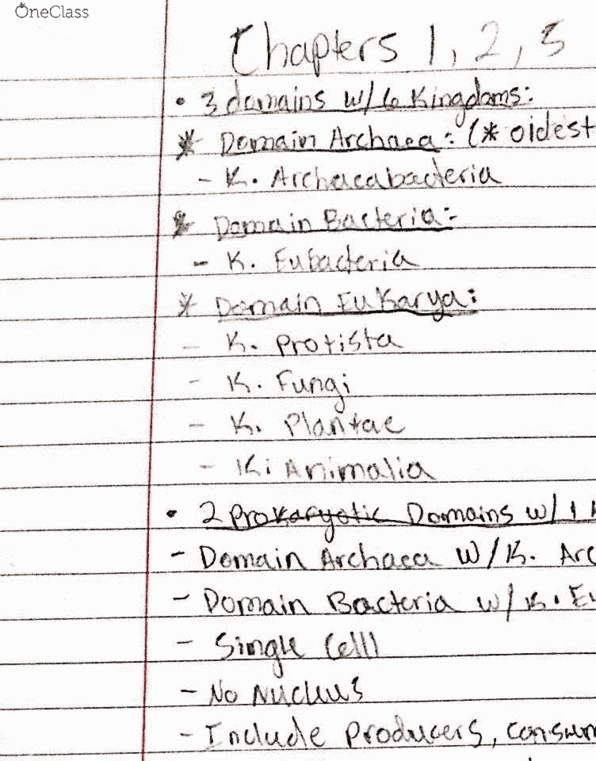 OneClass
Chapters 1, 2, 3
• 3 domains w/ 6 Kingdoms:
* Domain Archaea: (* oldest
- K. Archaeabacteria
* Domain Bacteria:
- K. Eubacteria
* Domain Eukarya:
- K. Protista
- K. Fungi
- K. Plantae
- K. Animalia
• 2 Prokaryotic Domains w/ 1
- Domain Archaea w/ K. Arc
- Domain Bacteria w/ K. Eu
- Single Cell
- No Nucleus
- Include Producers, consum